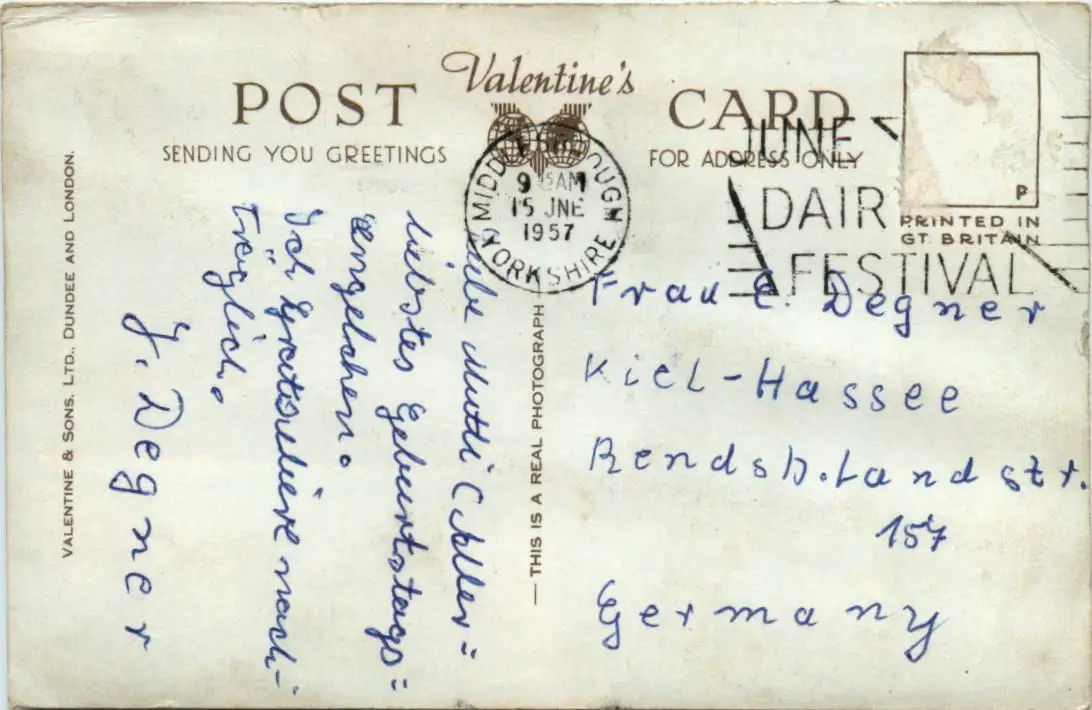 Valentine's
POST CARD
SENDING YOU GREETINGS
FOR ADDRESS ONLY
MIDD OUGH
9 15AM
15 JNE
1957
YORKSHIRE
JUNE
DAIR
FESTIVAL
P
PRINTED IN
GT. BRITAIN
VALENTINE & SONS, LTD., DUNDEE AND LONDON.
— THIS IS A REAL PHOTOGRAPH —
Liebe Mutti Aller=
liebstes Geburtstags=
engelchen.
Ich gratuliere nach-
träglich.
J. Degner
Frau E. Degner
Kiel-Hassee
Rendsb. Landstr.
157
Germany